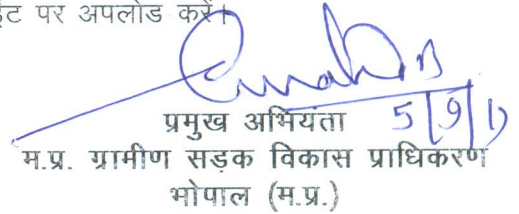 पर अपलोड करें।
प्रमुख अभियंता
म.प्र. ग्रामीण सड़क विकास प्राधिकरण
भोपाल (म.प्र.)